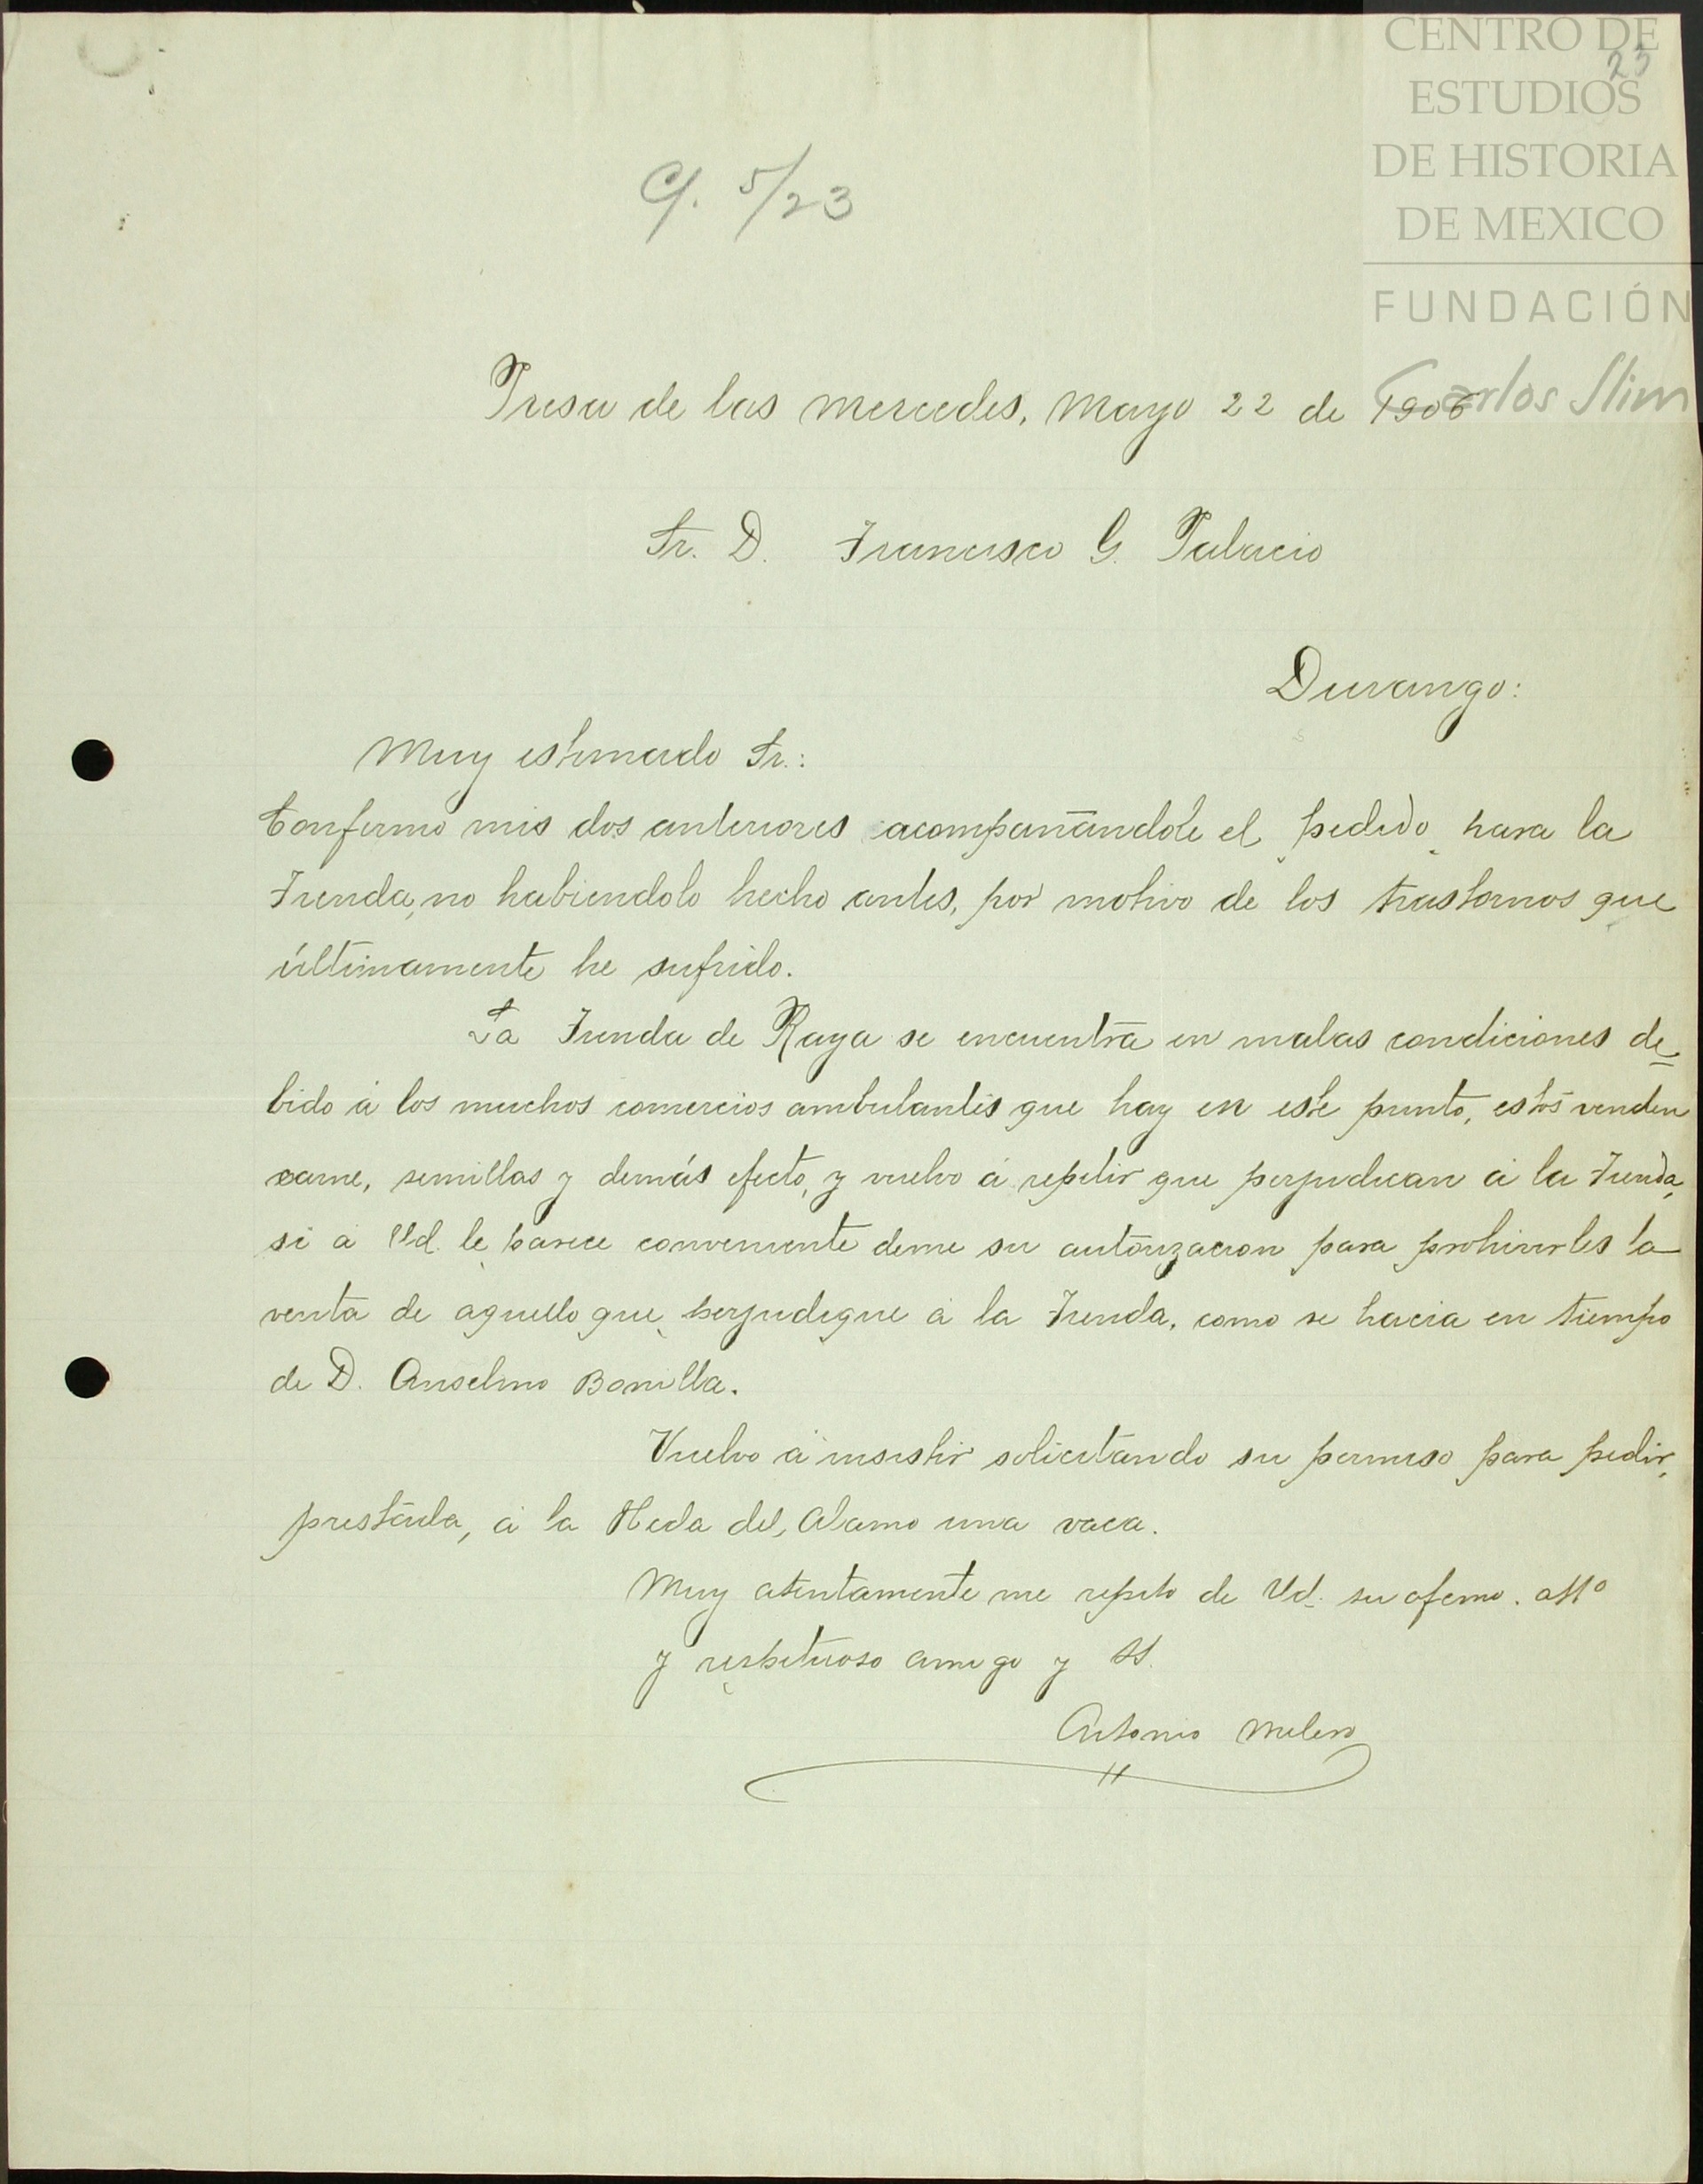 CENTRO DE
ESTUDIOS
DE HISTORIA
DE MEXICO
FUNDACIÓN
Carlos Slim
23
C/. 5/23
Presa de las Mercedes, Mayo 22 de 1906
Sr. D. Francisco G. Palacio
Durango:
Muy estimado Sr.:
Confirmo mis dos anteriores acompañándole el pedido para la
Tienda, no habiendolo hecho antes, por motivo de los trastornos que
últimamente he sufrido.
La Tienda de Raya se encuentra en malas condiciones de=
bido á los muchos comercios ambulantes que hay en este punto, estos venden
carne, semillas y demás efecto, y vuelvo á repetir que perjudican á la Tienda,
si á Vd. le parece conveniente deme su autorizacion para prohivirles la
venta de aquello que perjudique á la Tienda, como se hacia en tiempo
de D. Anselmo Bonilla.
Vuelvo á insistir solicitando su permiso para pedir,
prestada, á la Hcda del Alamo una vaca.
Muy atentamente me repito de Vd. su afcmo. atto
y respetuoso amigo y SS.
Antonio Melero